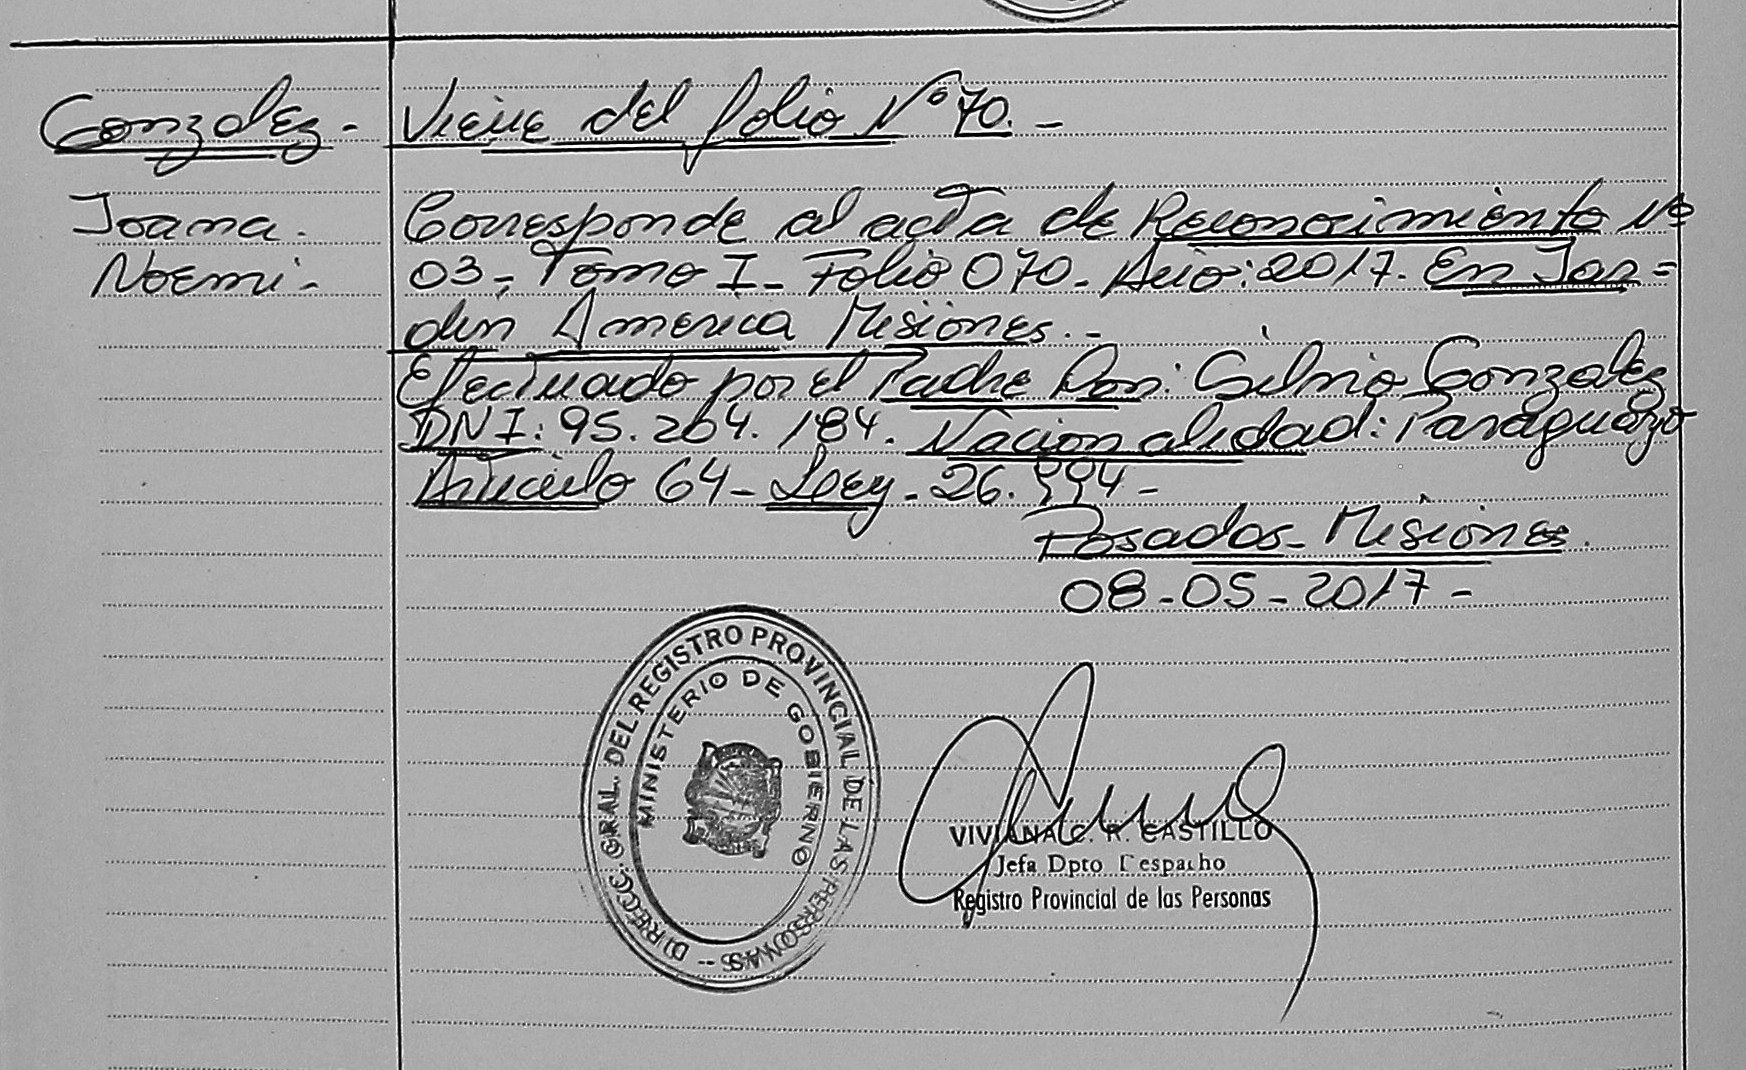 Gonzalez -
Joana.
Noemi -
Viene del folio Nº 70. -
Corresponde al acta de Reconocimiento Nº
03 - Tomo I - Folio 070 - Año: 2017. En Jar=
din America Misiones. -
Efectuado por el Padre Don: Silvio Gonzalez
DNI: 95.264.184. Nacionalidad: Paraguayo
Articulo 64 - Ley - 26.994 -
Posadas - Misiones.
08-05-2017 -
DIRECC. GRAL. DEL REGISTRO PROVINCIAL DE LAS PERSONAS --
MINISTERIO DE GOBIERNO
VIVIANA C. R. CASTILLO
Jefa Dpto Despacho
Registro Provincial de las Personas